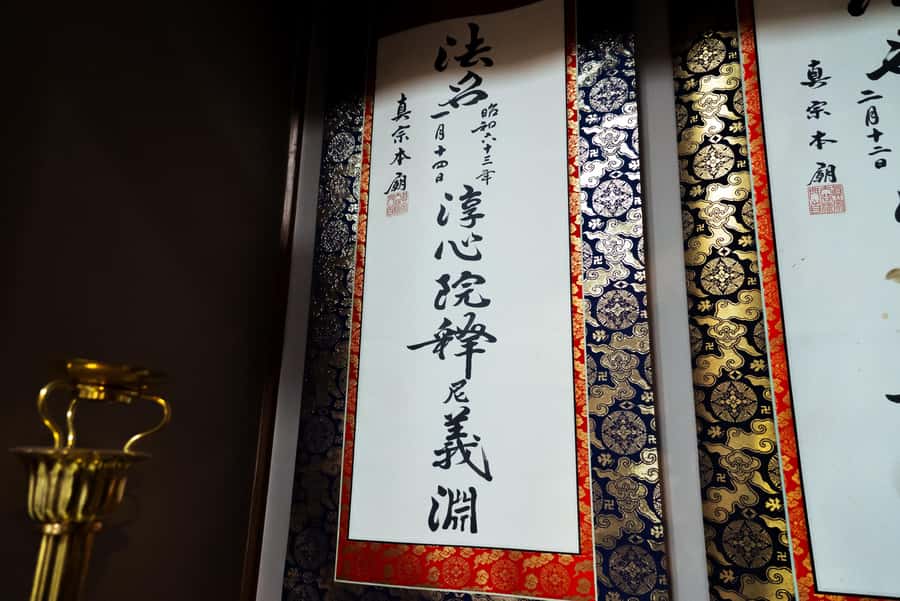 法名
昭和六十三年
一月十四日
真宗本廟
淳心院釋尼義淵
二月十二日
真宗本廟